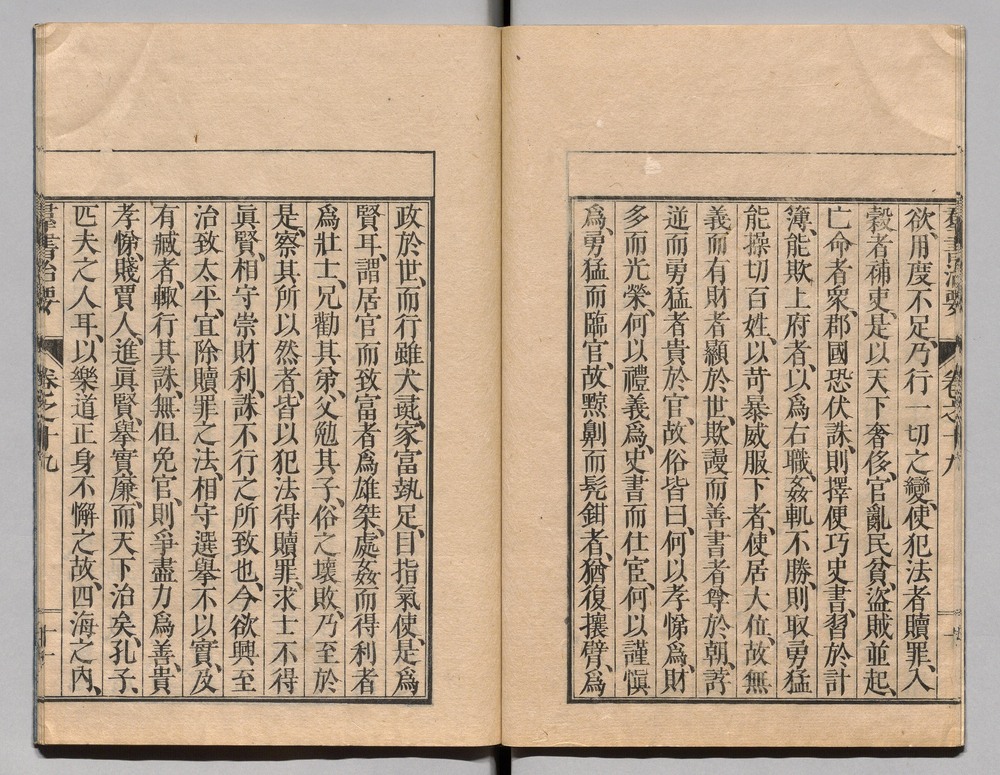 羣書治要
卷之十九
欲用度不足、乃行一切之變、使犯法者贖罪、入
穀者補吏、是以天下奢侈、官亂民貧、盜賊並起、
亡命者衆、郡國恐伏誅、則擇便巧史書、習於計
簿、能欺上府者、以爲右職、姦軌不勝、則取勇猛
能操切百姓、以苛暴威服下者、使居大位、故無
義而有財者顯於世、欺謾而善書者尊於朝、誖
逆而勇猛者貴於官、故俗皆曰、何以孝悌爲、財
多而光榮、何以禮義爲、史書而仕宦、何以謹愼
爲、勇猛而臨官、故黥劓而髡鉗者、猶復攘臂、爲
政於世、而行雖犬彘、家富埶足、目指氣使、是爲
賢耳、謂居官而致富者爲雄桀、處姦而得利者
爲壯士、兄勸其弟、父勉其子、俗之壞敗、乃至於
是、察其所以然者、皆以犯法得贖罪、求士不得
眞賢、相守崇財利、誅不行之所致也、今欲興至
治致太平、宜除贖罪之法、相守選舉不以實、及
有臧者、輙行其誅、無但免官、則爭盡力爲善、貴
孝悌、賤賈人、進眞賢、舉實廉、而天下治矣、孔子、
匹夫之人耳、以樂道正身不懈之故、四海之內、
羣書治要
卷之十九